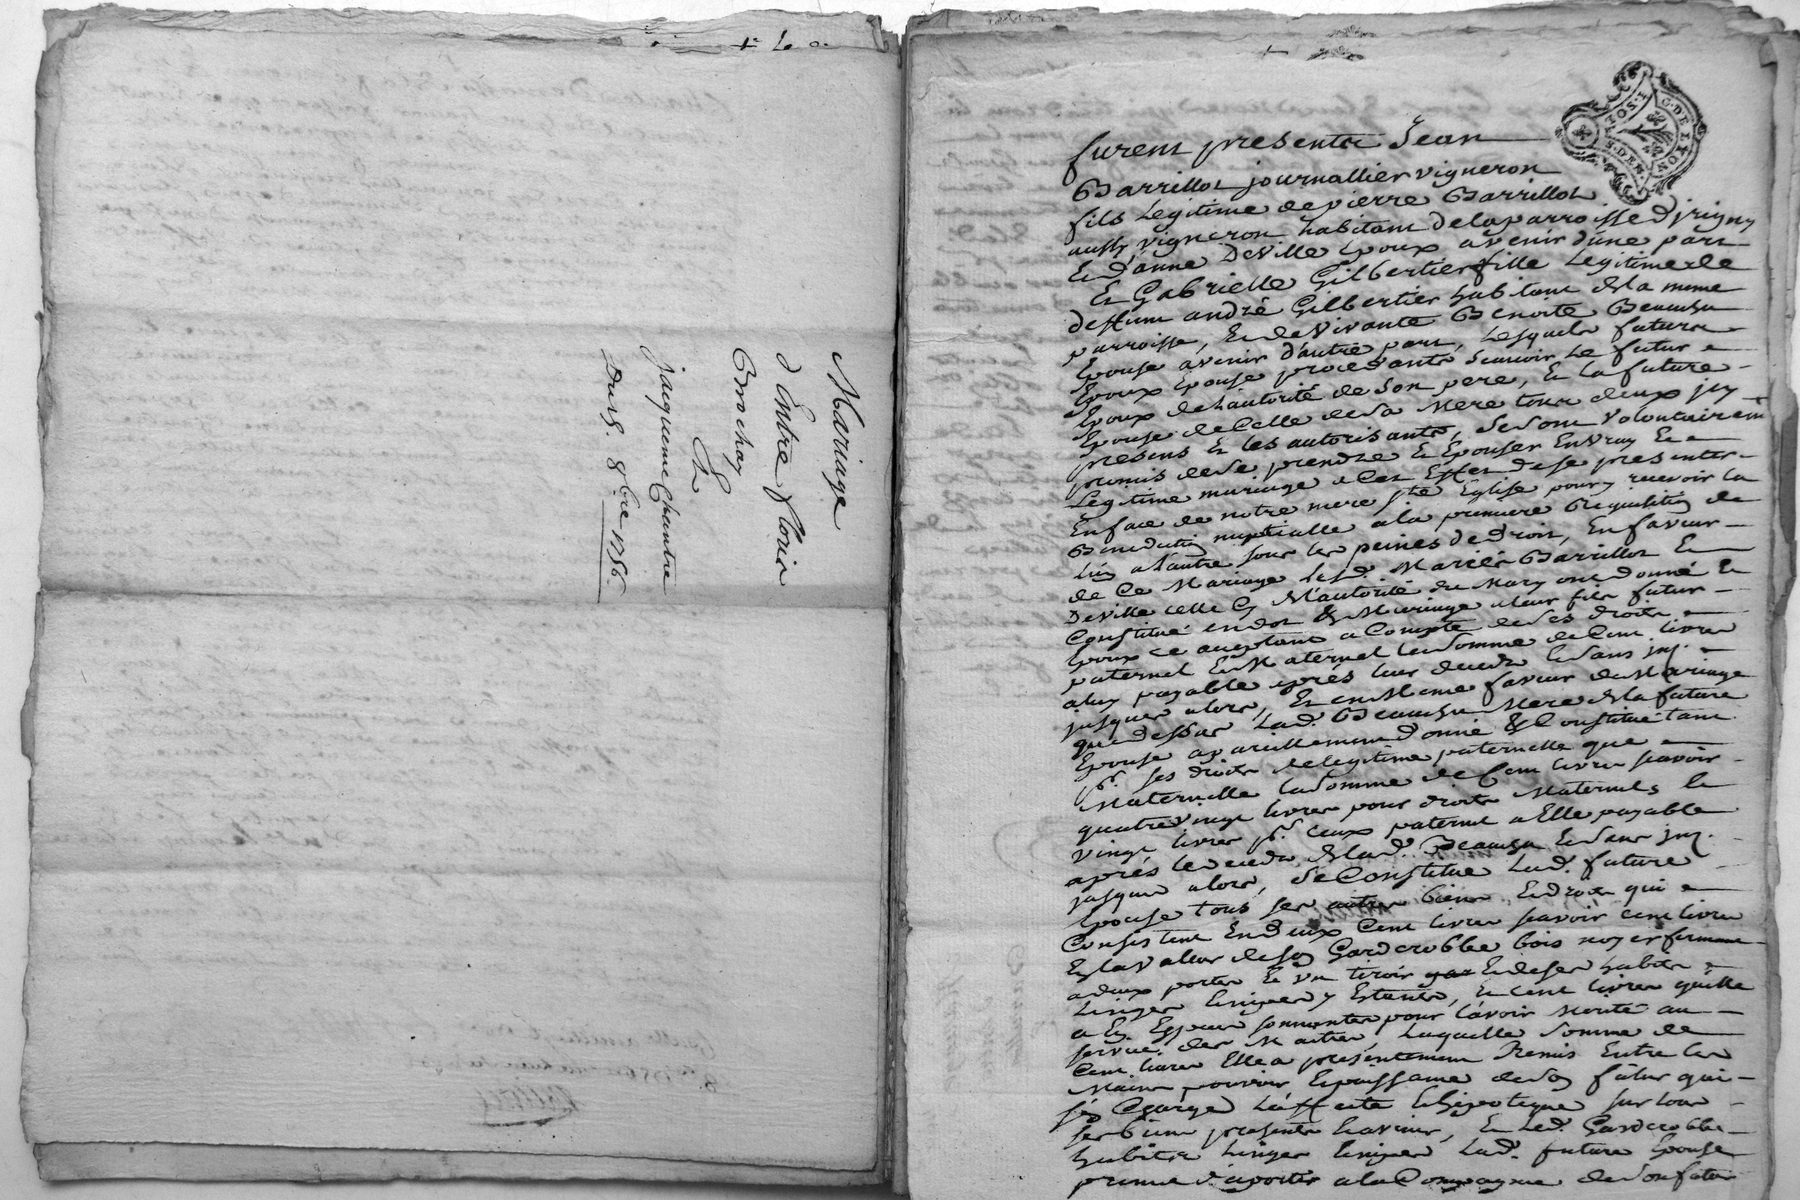 Mariage
d'Entre florir
Brochay
Et
jacqueme Chantre
Du 15. 8bre 1756
G. DE LYON
1. SOL
S. DEN.
furent presente Jean
Barrillot journallier vigneron
fils Legitime de pierre Barrillot
aussy vigneron habitant de la parroisse d'jrigny
Et d'anne Deville Epoux avenir d'une part
Et Gabrielle Gilbertier fille Legitime de
deffunt andré Gilbertier habitant de la meme
parroisse, Et de Vivante Benoite Beaucha
Epouse avenir d'autre part, Lesquels futurs
Epoux Epouse procedants scauoir Le futur
Epoux de Lautorité de son pere, Et la future
Epouse de Celle de sa Mere tous deux jcy
presens Et les autorisants, se sont volontairemt
promis de se prendre Et Epouser En vray Et
Legitime mariage a Cet Effet de se presenter
En face de notre mere ste Eglise pour y recevoir la
Benediction nuptialle a la premiere Requisition de
Lun a Lautre sous les peines de droit, En faveur
de Ce Mariage Lesd. Mariés Barrillot Et
Deville celle cy de L'autorité du Mary ont donné Et
Constitué en dot de Mariage a leur fils futur
Epoux ce aceptant a Compte de ses droits
paternel Et Maternel La somme de Cent Livres
a luy payable aprés leur deceds Et sans jnt.
jusques alors, Et en Meme faveur de Mariage
que dessus Lad. Beaucha Mere de la future
Epouse a pareillement donné & Constitué tant
pr. ses droits de legitime paternelle que
Maternelle La somme de Cent Livres scavoir
quatre vingt livres pour droits Maternels Et
vingt livres pr. ceux paternel a Elle payable
aprés le deceds de Lad. Beaucha Et sans jnt.
jusques alors, se Constitue Lad. future
Epouse tous ses autres biens Et droits qui
Consistent En deux Cent livres scavoir cent livres
En la valleur de son Garderobbe bois noyer fermant
a deux portes Et un tiroir Et de ses habits
Linges Lingeries y Estants, Et cent livres qu'elle
a En Especes sonnantes pour L'avoir Monté au
service des Maitres, Laquelle somme de
Cent livres Elle a presentement Remis Entre les
Mains pouvoir Et puissance de son futur qui
s'en Charge L'affecte Et hipoteque sur tous
ses biens presents Et avenir, Et Led. Garderobbe
habits Linges Lingeries Lad. future Epouse
promet d'aporter a la Compagnie de son futur